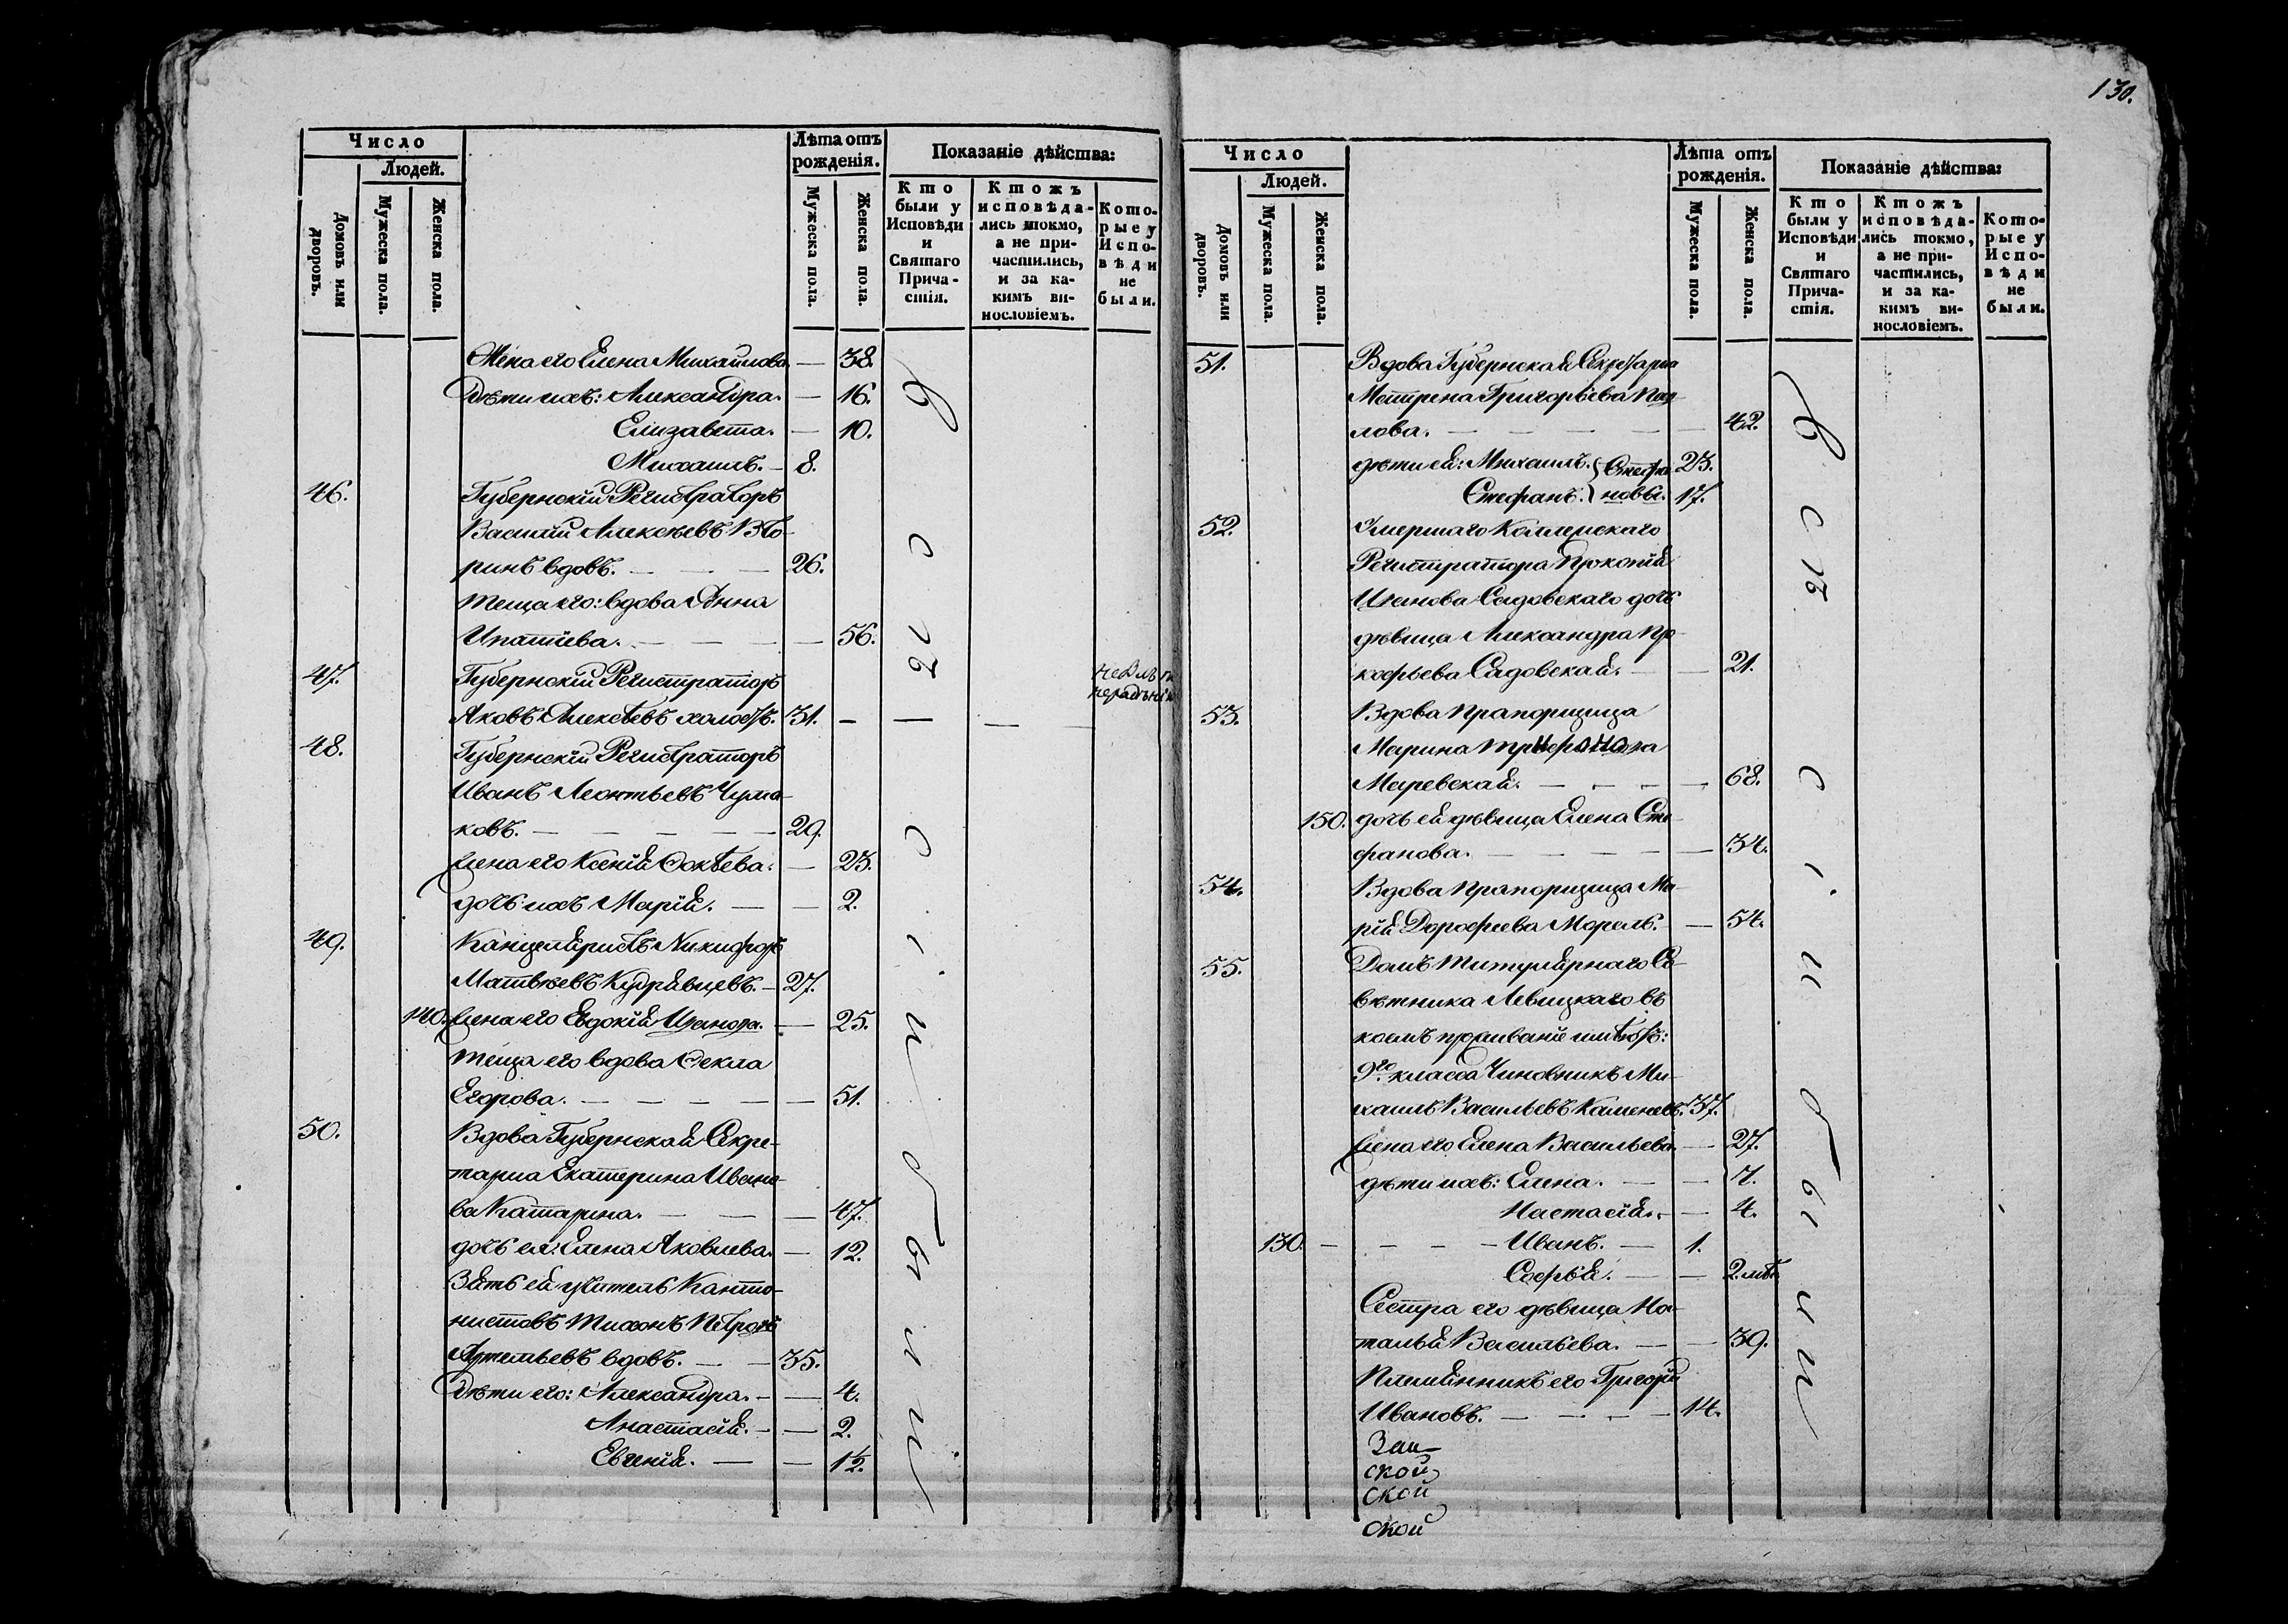 130.
Число
Людей.
Домовъ или дворовъ.
Мужеска пола.
Женска пола.
Лѣта отъ рожденія.
Мужеска пола.
Женска пола.
Показаніе дѣйства:
Кто были у Исповѣди и Святаго Прича-стія.
Ктожъ исповѣда-лись токмо, а не при-частились, и за ка-кимъ ви-нословіемъ.
Кото-рые у Испо-вѣди не были.
Жена его Елена Михайлова. — 38.
Дѣти ихъ: Александра. — 16.
Елизавета. — 10.
Михаилъ. — 8.
46. Губернскій Регистраторъ
Василій Алексѣевъ Вто-
ринъ вдовъ. — — — 26.
Теща его: вдова Анна
Ипатіева. — — — 56.
47. Губернскій Регистраторъ
Яковъ Алексѣевъ холостъ. 31. — — —
48. Губернскій Регистраторъ
Иванъ Леонтьевъ Чума-
ковъ. — — — — — 29.
Жена его Ксенія Фокѣева. — 23.
дочь ихъ Марія. — — 2.
49. Канцеляристъ Никифоръ
Матвѣевъ Кудрявцевъ. — 27.
140. Жена его Евдокія Иванова. — 25.
Теща его вдова Фекла
Егорова. — — — — — 51.
50. Вдова Губернская Секре-
тарша Екатерина Ивано-
ва Катарина. — — — 47.
дочь ея: Елена Яковлева. — 12.
Зять ея учитель Канто-
нистовъ Тихонъ Петровъ
Артемьевъ вдовъ. — — 35.
Дѣти его: Александра. — — 4.
Анастасія. — — 2.
Евгенія. — — 1½.
всѣ были
Число
Людей.
Домовъ или дворовъ.
Мужеска пола.
Женска пола.
Лѣта отъ рожденія.
Мужеска пола.
Женска пола.
Показаніе дѣйства:
Кто были у Исповѣди и Святаго Прича-стія.
Ктожъ исповѣда-лись токмо, а не при-частились, и за ка-кимъ ви-нословіемъ.
Кото-рые у Испо-вѣди не были.
51. Вдова Губернская Секретарша
Матрена Григорьева
лова. — — — — — — 42.
дѣти ея: Михаилъ. } Стефа- 23.
Стефанъ. } новы. 17.
52. Умершаго Коллежскаго
Регистратора Прокопія
Иванова Садовскаго дочь
дѣвица Александра Про-
кофьева Садовская. — — 21.
53. Вдова Прапорщица
Марина
Маревская. — — — — 68.
150. дочь ея дѣвица Елена Сте-
фанова. — — — — — 34.
54. Вдова Прапорщица Ма-
рія Дорофеева Морель. — 54.
55. Домъ Титулярнаго Со-
вѣтника Левицкаго въ
коемъ проживаніе имѣютъ:
9го класса Чиновникъ Ми-
хаилъ Васильевъ Каменевъ. 37.
Жена его Елена Васильева. — 27.
дѣти ихъ: Елена. — — 7.
Настасія. — 4.
130. — — — — Иванъ. — 1.
Софья. — —
Сестра его дѣвица На-
талья Васильева. — — 39.
Племянникъ его Григорій
Ивановъ. — — — — 14.
ской
ской
ской